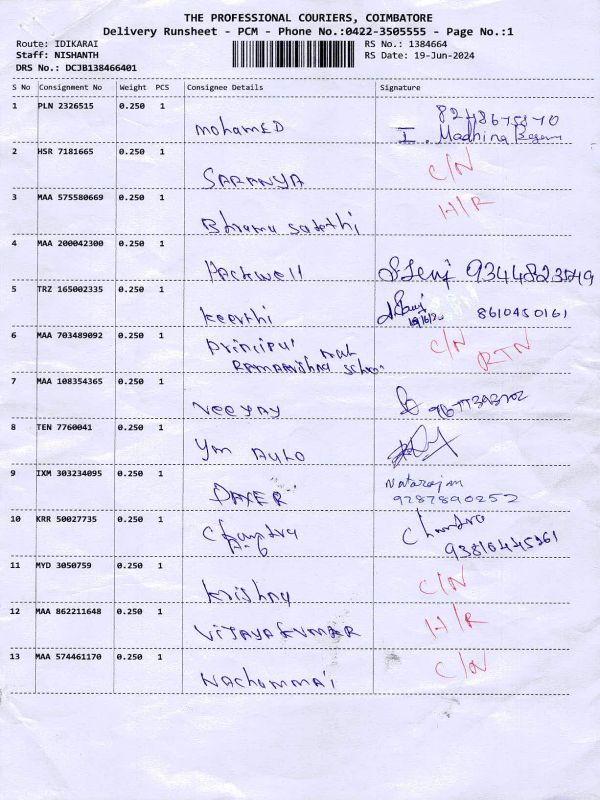 THE PROFESSIONAL COURIERS, COIMBATORE
Delivery Runsheet - PCM - Phone No.:0422-3505555 - Page No.:1
Route: IDIKARAI RS No.: 1384664
Staff: NISHANTH RS Date: 19-Jun-2024
DRS No.: DCJB138466401
S No Consignment No Weight PCS Consignee Details Signature
1 PLN 2326515 0.250 1
mohamED I. Madhina Begam
2 HSR 7181665 0.250 1 C/N
SARANYA
3 MAA 575580669 0.250 1 H/R
4 MAA 200042300 0.250 1
Packwell
5 TRZ 165002335 0.250 1
keerthi 8610450161
6 MAA 703489092 0.250 1 C/N RTN
principul
school
7 MAA 108354365 0.250 1
veeyay
8 TEN 7760041 0.250 1
Ym AUTO
9 IXM 303234095 0.250 1 Natarajan
9787890252
10 KRR 50027735 0.250 1 Chandra
Chandra
11 MYD 3050759 0.250 1 C/N
krishna
12 MAA 862211648 0.250 1 H/R
VIJAYAKUMAR
13 MAA 574461170 0.250 1 C/N
Nachammai